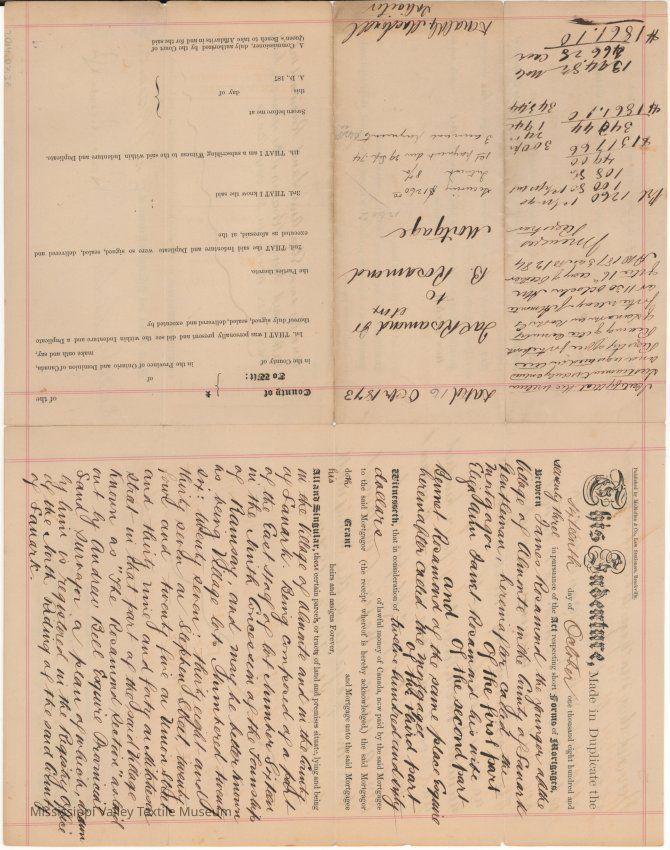 Published by McMullen & Co., Law Stationers, Brockville.
This Indenture, Made in Duplicate the
fifteenth day of October one thousand eight hundred and
seventy three in pursuance of the Act respecting short Forms of Mortgages,
Between James Rosamond the younger of the
Village of Almonte in the County of Lanark
Gentleman, hereinafter called the
Mortgagor of the first part
Elizabeth Janet Rosamond his wife
of the second part
and
Bennet Rosamond of the same place Esquire
hereinafter called the Mortgagee
of the third part
Witnesseth, that in consideration of twelve hundred and sixty
dollars of lawful money of Canada, now paid by the said Mortgagee
to the said Mortgagor (the receipt whereof is hereby acknowledged,) the said Mortgagor
doth Grant and Mortgage unto the said Mortgagee
his heirs and assigns Forever,
All and Singular, those certain parcels or tracts of land and premises situate, lying and being
in the Village of Almonte and in the County
of Lanark Being composed of a part
of the East half of Lot number Sixteen
in the Ninth Concession of the Township
of Ramsay and may be better known
as being Village lots numbered twenty
six, twenty seven, thirty eight and
thirty seven on Stephen Street twenty
four and twenty five on Union Street
and thirty nine and forty on Malcolm
Street in that part of the said Village
known as "The Rosamond Section" as laid
out by Andrew Bell Esquire Provincial
Land Surveyor a plan of which, drawn
by him is registered in the Registry Office
of the North Riding of the said County
of Lanark.
County of
To Wit:
of the
of
in the County of
in the Province of Ontario and Dominion of Canada,
make oath and say,
1st. THAT I was personally present and did see the within Indenture and a Duplicate
thereof duly signed, sealed, delivered and executed by
the Parties thereto.
2nd. THAT the said Indenture and Duplicate were so signed, sealed, delivered and
executed as aforesaid, at the
3rd. THAT I know the said
4th. THAT I am a subscribing Witness to the said within Indenture and Duplicate.
Sworn before me at
this day of
A. D. 187
A Commissioner, duly authorised by the Court of
Queen's Bench to take Affidavits in and for the said
Dated 16 Oct. 1873
Jas Rosamond Jr
et ux
to
B. Rosamond
Mortgage
Securing $1260.00
Interest 8%
1st payment due
3 annual payments
Macdonell
Solicitor
I certify that the within
Instrument is duly entered
and registered in the
Registry office for the
Riding of the County
of Lanark in
for the Village of Almonte
at 11.30 o'clock
of the 16th day of October
AD 1873
Registrar
1260
100.80
108
$1861.10
$1861.10
Mississippi Valley Textile Museum